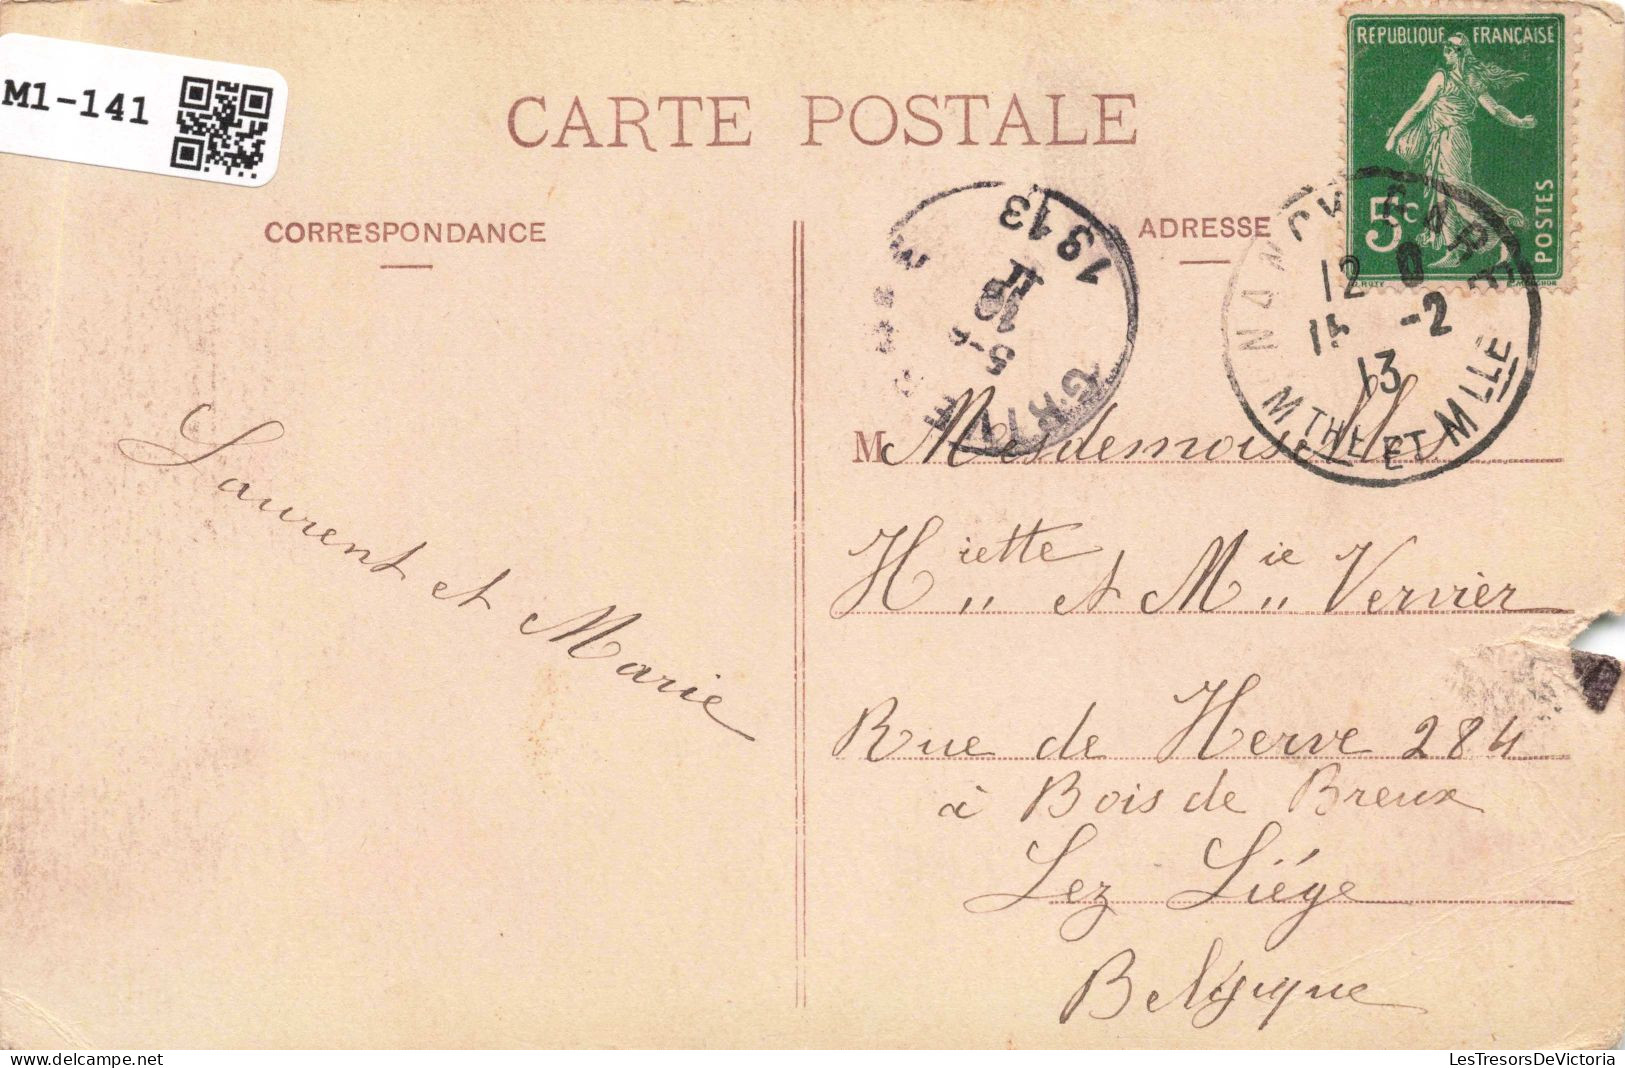 M1-141
CARTE POSTALE
CORRESPONDANCE
ADRESSE
REPUBLIQUE FRANÇAISE
5c
POSTES
NANCY GARE
12
-2
13
MTHE ET MLLE
GRIVE
5-6
10
II
1913
Laurent et Marie
M Mesdemoiselles
Hiette et Mie Vervier
Rue de Herve 284
à Bois de Breux
Lez Liége
Belgique
LesTresorsDeVictoria